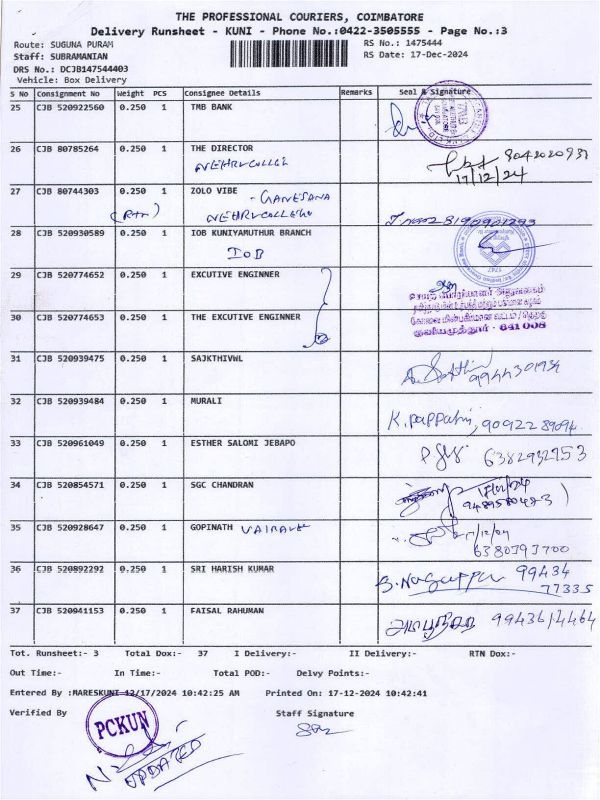 THE PROFESSIONAL COURIERS, COIMBATORE
Delivery Runsheet - KUNI - Phone No.:0422-3505555 - Page No.:3
Route: SUGUNA PURAM
RS No.: 1475444
Staff: SUBRAMANIAN
RS Date: 17-Dec-2024
DRS No.: DCJB147544403
Vehicle: Box Delivery
S No Consignment No Weight PCS Consignee Details Remarks Seal & Signature
25 CJB 520922560 0.250 1 TMB BANK
26 CJB 80785264 0.250 1 THE DIRECTOR
NEHRU COLLEGE
17/12/24
27 CJB 80744303 0.250 1 ZOLO VIBE - GANESANA
NEHRU COLLEGE
28 CJB 520930589 0.250 1 IOB KUNIYAMUTHUR BRANCH
IOB
29 CJB 520774652 0.250 1 EXCUTIVE ENGINNER
30 CJB 520774653 0.250 1 THE EXCUTIVE ENGINNER
குனியமுத்தூர் - 641 008
31 CJB 520939475 0.250 1 SAJKTHIVWL
9944301934
32 CJB 520939484 0.250 1 MURALI
K. pappathi, 9092289094
33 CJB 520961049 0.250 1 ESTHER SALOMI JEBAPO
6382932753
34 CJB 520854571 0.250 1 SGC CHANDRAN
35 CJB 520928647 0.250 1 GOPINATH
36 CJB 520892292 0.250 1 SRI HARISH KUMAR
99434
77335
37 CJB 520941153 0.250 1 FAISAL RAHUMAN
Tot. Runsheet:- 3 Total Dox:- 37 I Delivery:- II Delivery:- RTN Dox:-
Out Time:- In Time:- Total POD:- Delvy Points:-
Entered By :MARESKUNI 12/17/2024 10:42:25 AM Printed On: 17-12-2024 10:42:41
Verified By Staff Signature
PCKUN
UPDATED